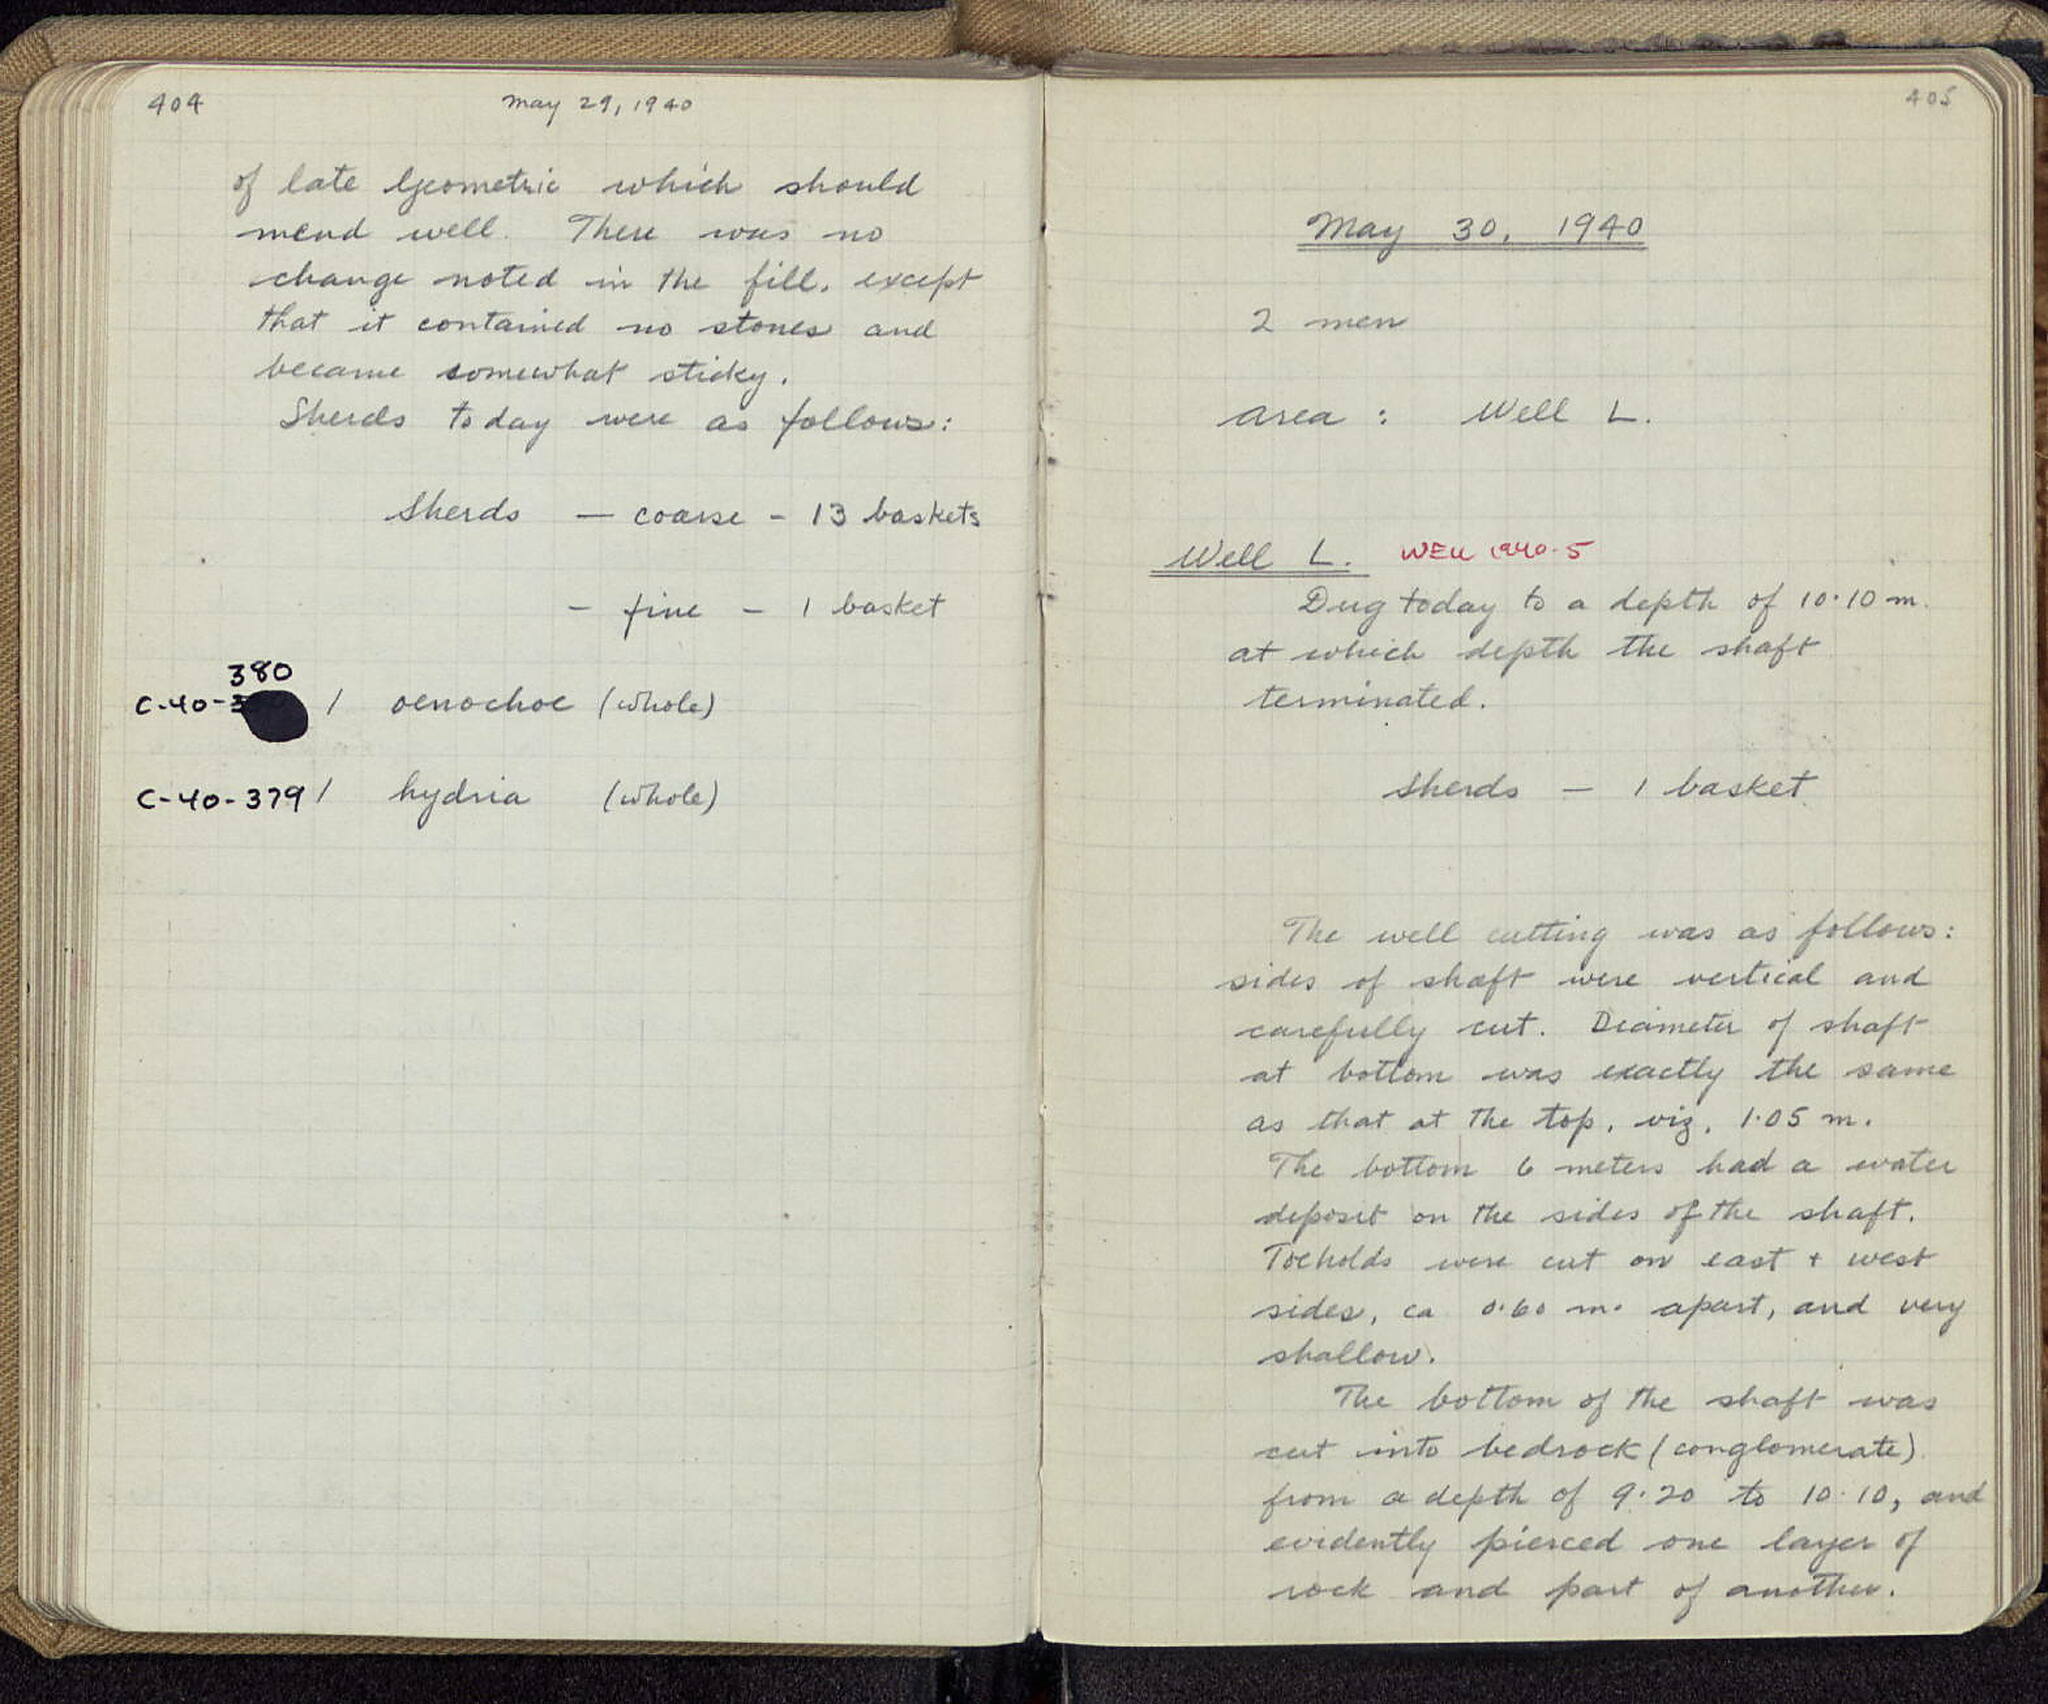 404
May 29, 1940
of late Geometric which should
mend well. There was no
change noted in the fill, except
that it contained no stones and
became somewhat sticky.
Sherds today were as follows:
Sherds — coarse - 13 baskets
- fine - 1 basket
380
C-40-3 1 oenochoe (whole)
C-40-379 1 hydria (whole)
405
May 30, 1940
2 men
area : Well L.
Well L. WELL 1940-5
Dug today to a depth of 10.10 m.
at which depth the shaft
terminated.
Sherds — 1 basket
The well cutting was as follows:
sides of shaft were vertical and
carefully cut. Diameter of shaft
at bottom was exactly the same
as that at the top, viz, 1.05 m.
The bottom 6 meters had a water
deposit on the sides of the shaft.
Toeholds were cut on east + west
sides, ca 0.60 m. apart, and very
shallow.
The bottom of the shaft was
cut into bedrock (conglomerate)
from a depth of 9.20 to 10.10, and
evidently pierced one layer of
rock and part of another.